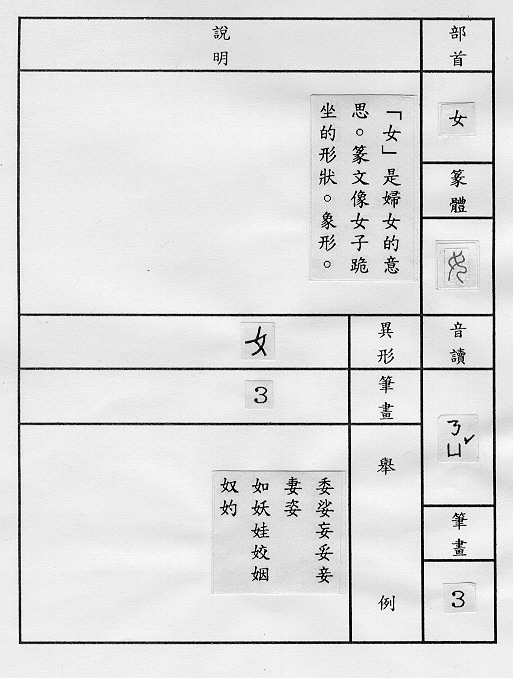 部首
女
篆體
音讀
ㄋㄩˇ
筆畫
3
說明
「女」是婦女的意
思。篆文像女子跪
坐的形狀。象形。
異形
女
筆畫
3
舉例
委娑妄妥妾
妻姿
如妖娃姣姻
奴妁